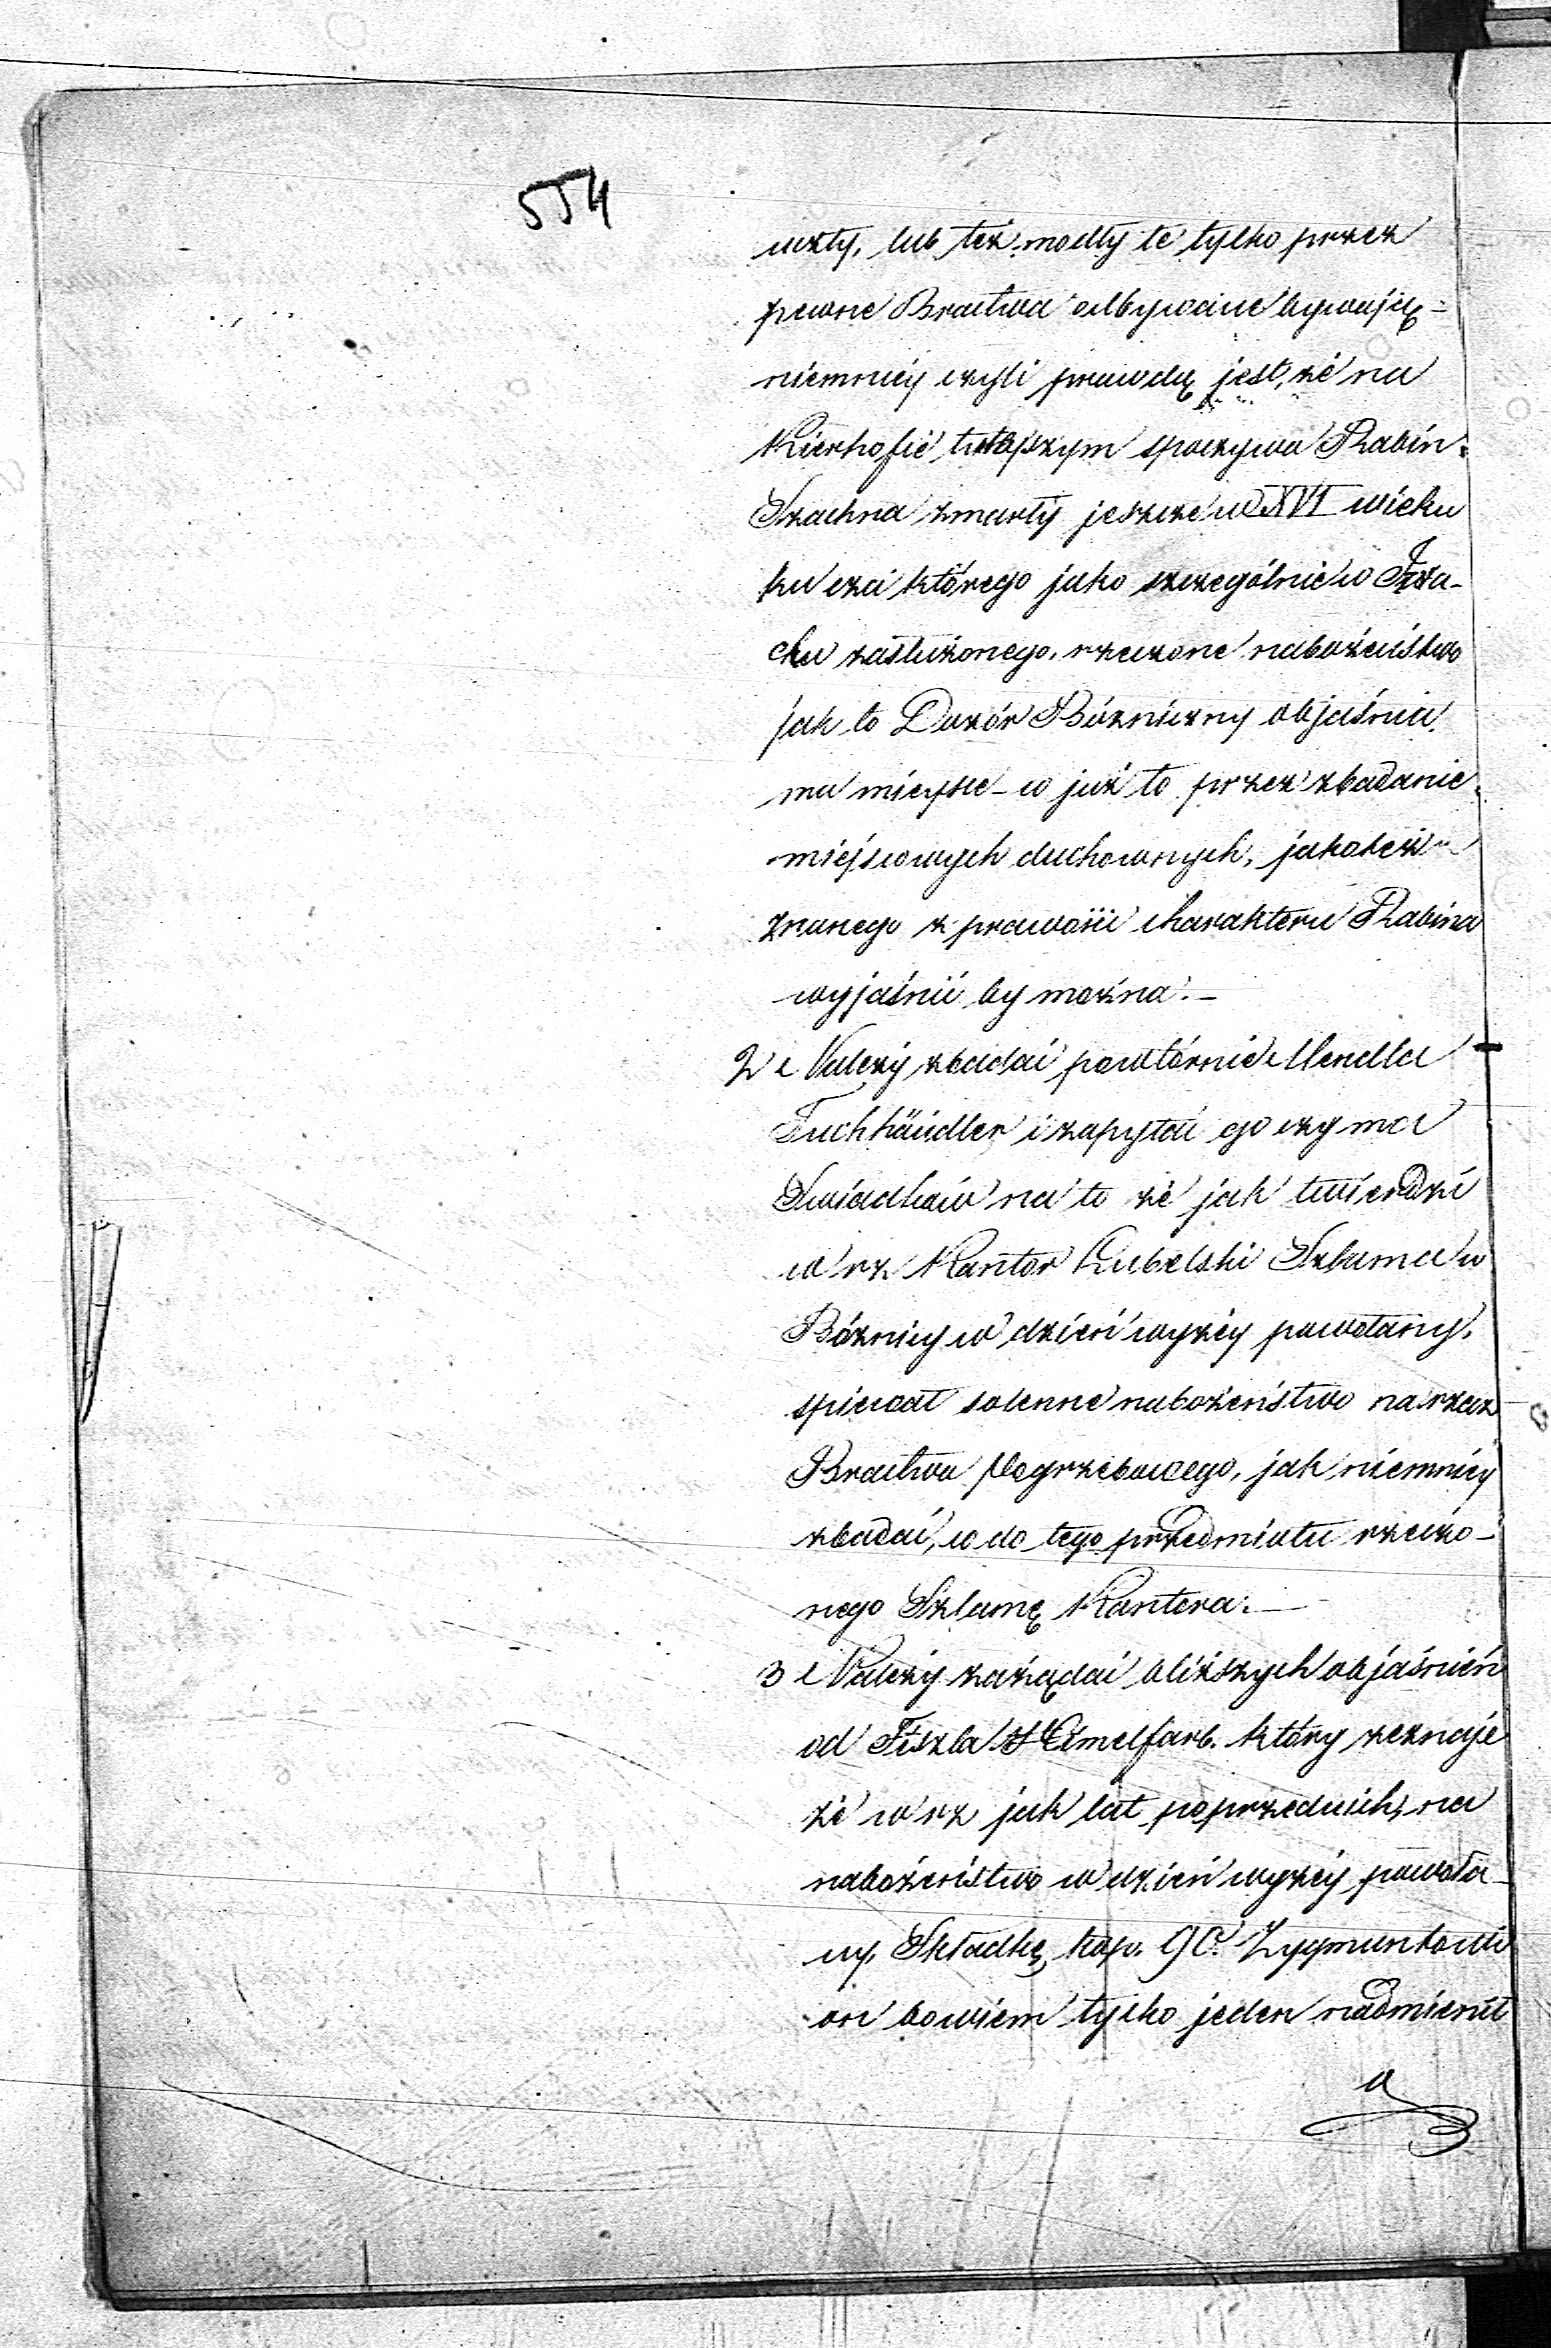 554
uczty, lub też modły te tylko przez
pewne Bractwa odbywane bywają =
niemniéj czyli prawdą jest, że na
Kierhofie tutejszym spoczywa Rabin
Szachna zmarły jeszcze w XVI wieku
ku czci którego jako szczególnie w
chu zasłużonego, rzeczone nabożeństwo
jak to Dozór Bóżniczny objaśnia
ma miejsce – co już to przez zbadanie
miejscowych duchownych, jakoteż
znanego z prawości charakteru Rabina
wyjaśnić by można. –
2 Należy zbadać powtórnie Mendla
Tuchhändler i zapytać go czy ma
Świadków na to że jak twierdzi
w rz Kantor Lubelski Szlama w
Bóżnicy w dzień wyżéj powołany,
śpiewał solenne nabożeństwo na rzecz
Bractwa Pogrzebowego, jak niemniéj
zbadać, co do tego przedmiotu rzeczo-
nego Szlamę Kantora. –
3 Należy zażądać bliższych objaśnień
od Fiszla Himelfarb. który zeznaje
że w rz jak lat poprzednich, na
nabożeństwo w dzień wyżéj powoła-
ny, Składkę kop. 90 Zygmuntowi
on bowiem tylko jeden nadmienił